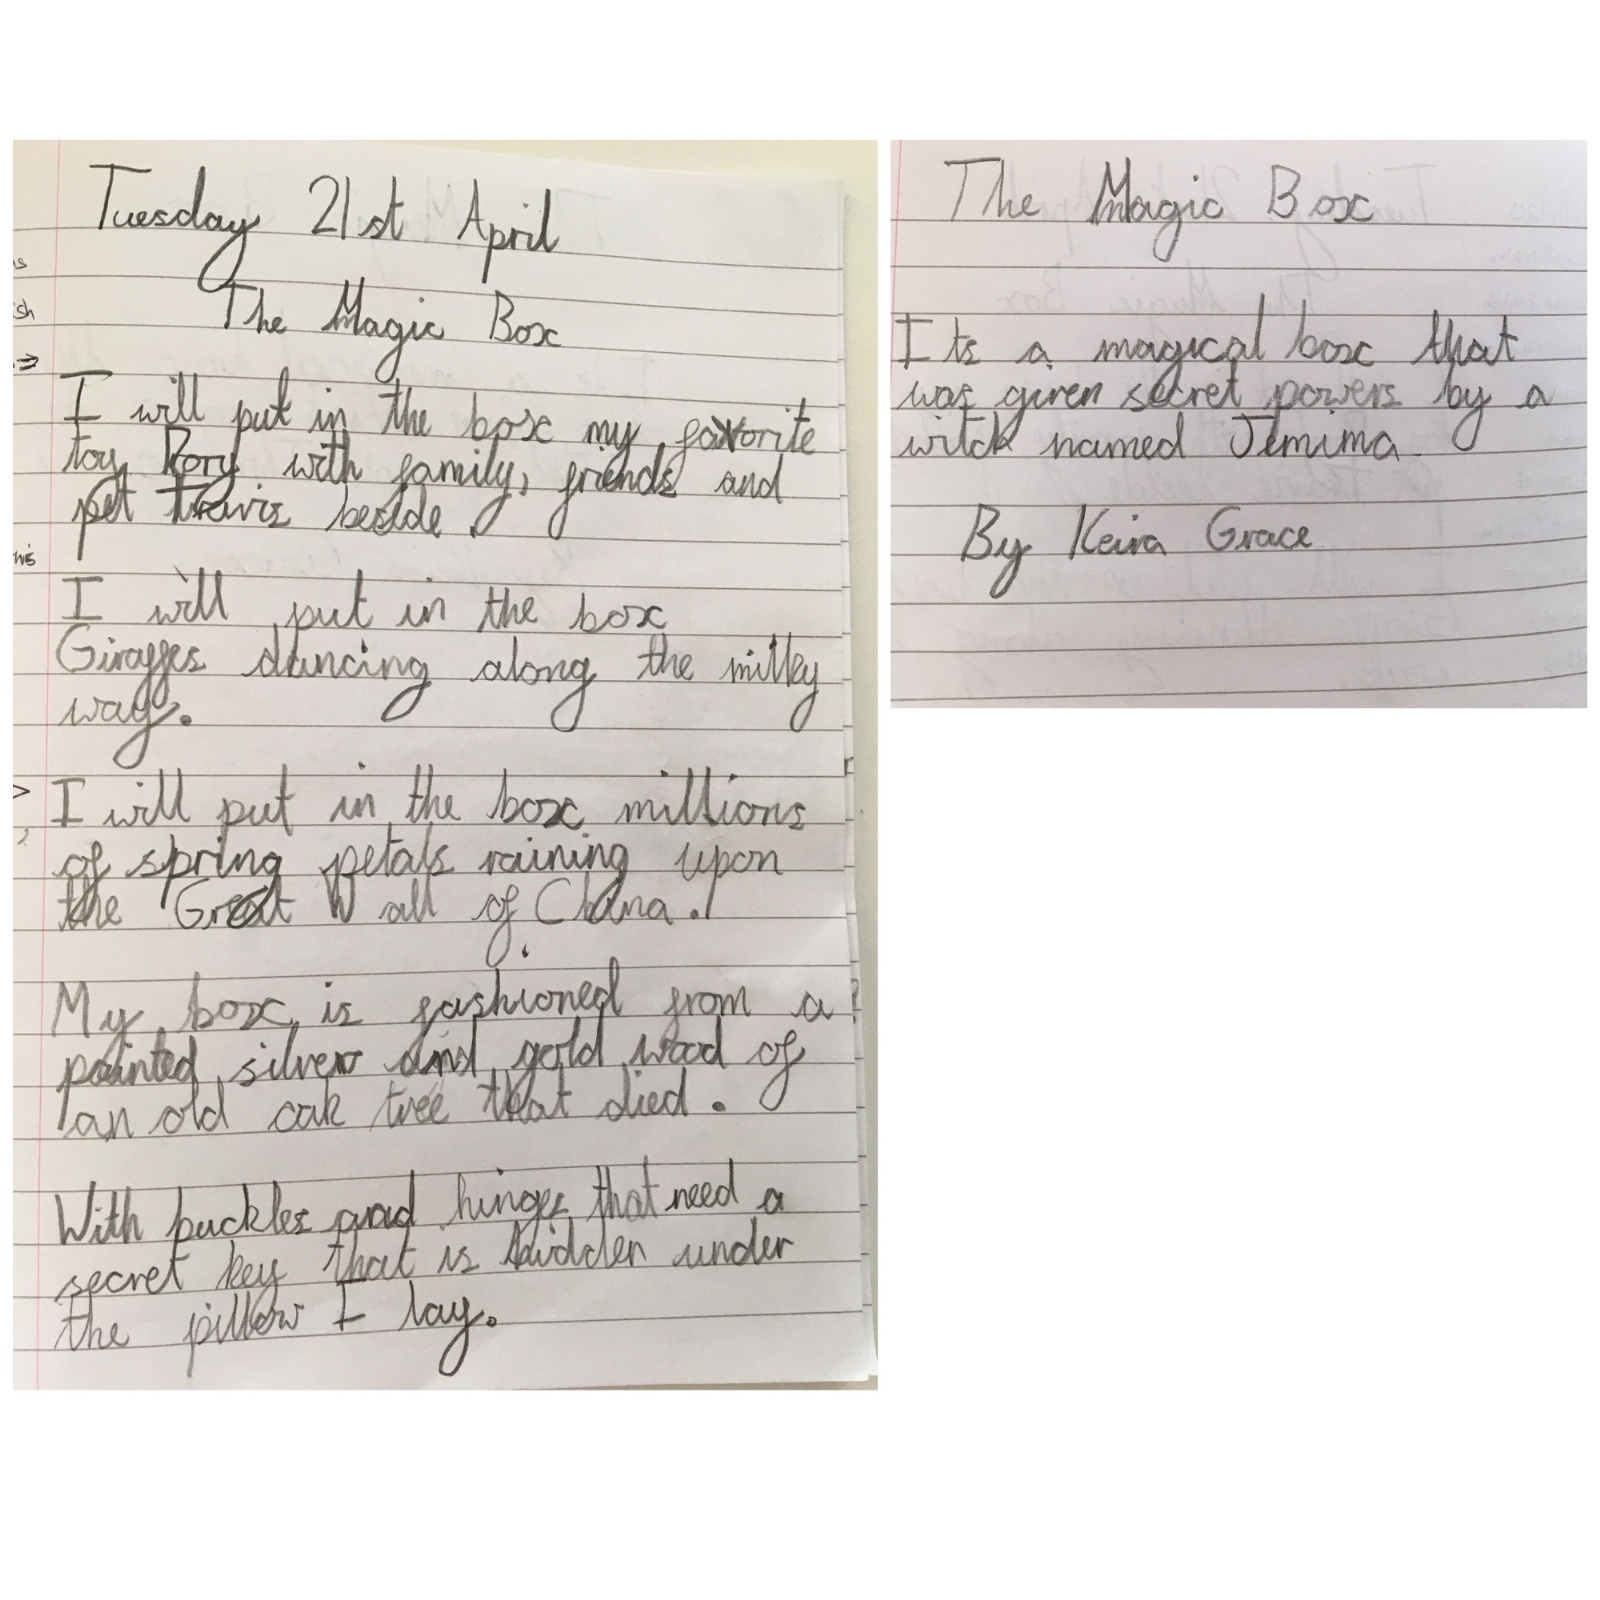 Tuesday 21st April
The Magic Box
I will put in the box my favorite
toy Rory with family, friends and
pet Travis beside.
I will put in the box
Giraffes dancing along the milky
way.
I will put in the box millions
of spring petals raining upon
the Great Wall of China.
My box is fashioned from a
painted silver and gold wood of
an old oak tree that died.
With buckles and hinges that need a
secret key that is hidden under
the pillow I lay.
The Magic Box
Its a magical box that
was given secret powers by a
witch named Jemima.
By Keira Grace